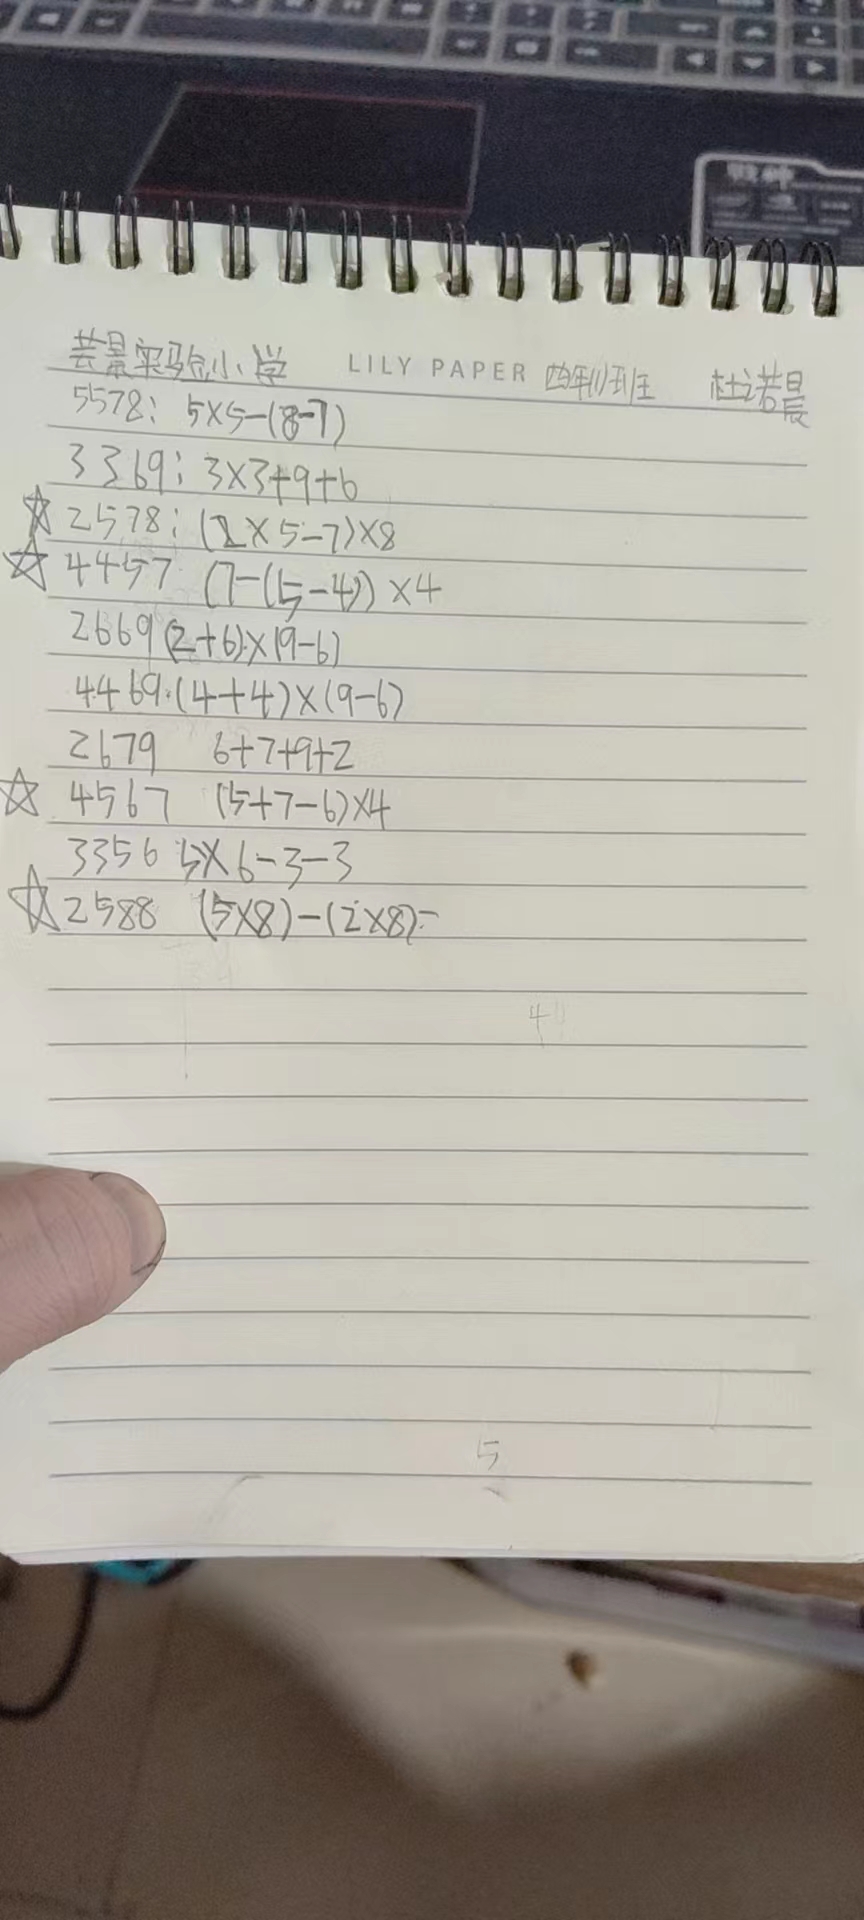 芸景实验小学 LILY PAPER 四年1班 杜诺晨
5578: 5×5-(8-7)
3369: 3×3+9+6
☆2578: (2×5-7)×8
☆4457 (7-(5-4))×4
2669(2+6)×(9-6)
4469.(4+4)×(9-6)
2679 6+7+9+2
☆4567 (5+7-6)×4
3356 5×6-3-3
☆2588 (5×8)-(2×8)=
4
5